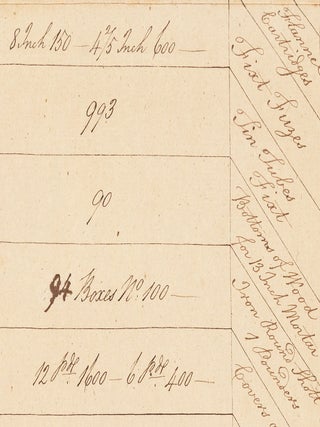 8 Inch 150 — 4 2/5 Inch 600 —
993
90
94 Boxes No. 100 —
12 pdr 1600 — 6 pdr 400 —
Flanne
Cartridges
Fixt Fuzes
Tin Tubes
Fixt
Bottoms of Wood
for 13 Inch Mortar
Iron Round Shott
1 Pounders
Covers o